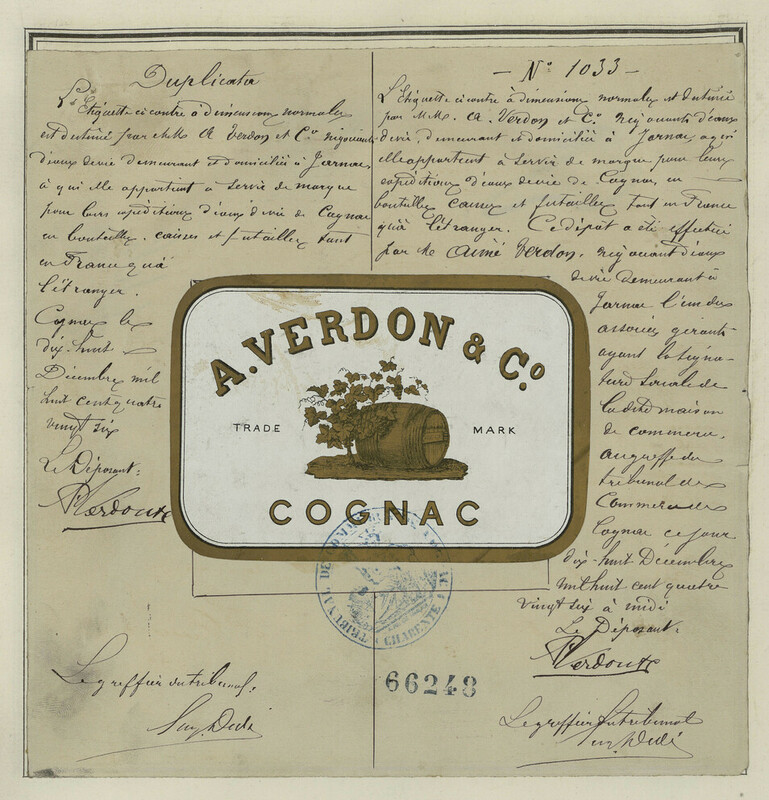 Duplicata
L'Etiquette ci contre à dimensions normales
est destiné par MM. A Verdon et Co négociants
d'eaux de vie demeurant et domiciliés à Jarnac,
à qui elle appartient à servir de marque
pour leurs expéditions d'eaux de vie de Cognac
en bouteilles, caisses et futailles tant
en France qu'à
l'étranger.
Cognac le
dix-huit
Décembre mil
huit cent quatre
vingt six
Le Déposant:
AVerdon
Le greffier du tribunal.
— No 1033 —
L'Etiquette ci contre à dimensions normales est destiné
par MM. A. Verdon et Co. négociants d'eaux
de vie, demeurant et domiciliés à Jarnac, à qui
elle appartient à servir de marque pour leurs
expéditions d'eaux de vie de Cognac, en
bouteilles caisses et futailles tant en France
qu'à l'étranger. Ce dépôt a été effectué
par M. Aimé Verdon, négociant d'eaux
de vie demeurant à
Jarnac l'un des
associés gérants
ayant la signa-
ture sociale de
la dite maison
de commerce,
au greffe du
tribunal de
Commerce de
Cognac ce jour
dix-huit Décembre
mil huit cent quatre
vingt six à midi
Le Déposant:
AVerdon
Le greffier du tribunal
A. VERDON & Co.
TRADE MARK
COGNAC
TRIBUNAL DE COMMERCE
CHARENTE
66248